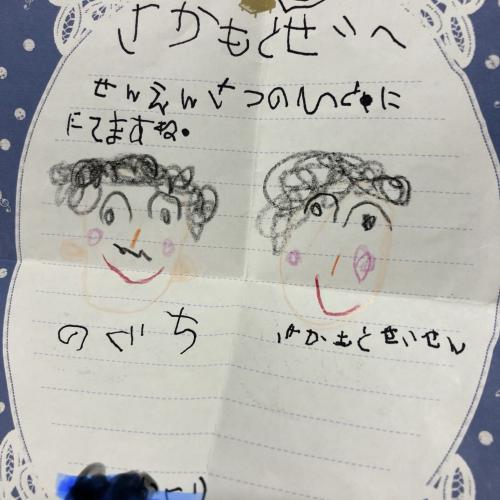 さかもとせいへ
せんえんさつのひとに
にてますね。
のぐち
さかもとせいせん